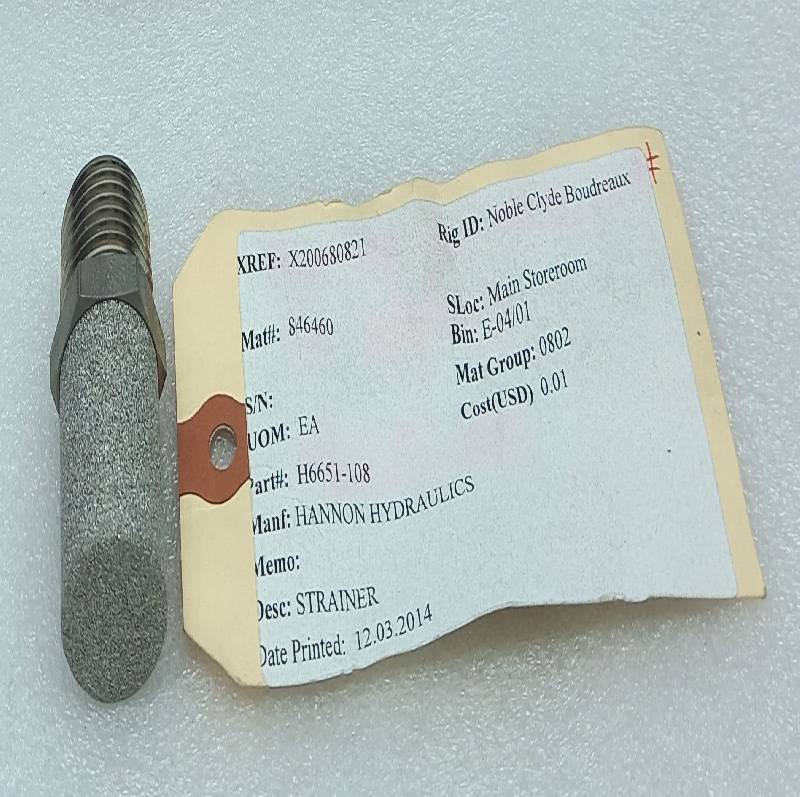 XREF: X200680821
Rig ID: Noble Clyde Boudreaux
Mat#: 846460
SLoc: Main Storeroom
Bin: E-04/01
Mat Group: 0802
Cost(USD) 0.01
S/N:
UOM: EA
Part#: H6651-108
Manf: HANNON HYDRAULICS
Memo:
Desc: STRAINER
Date Printed: 12.03.2014